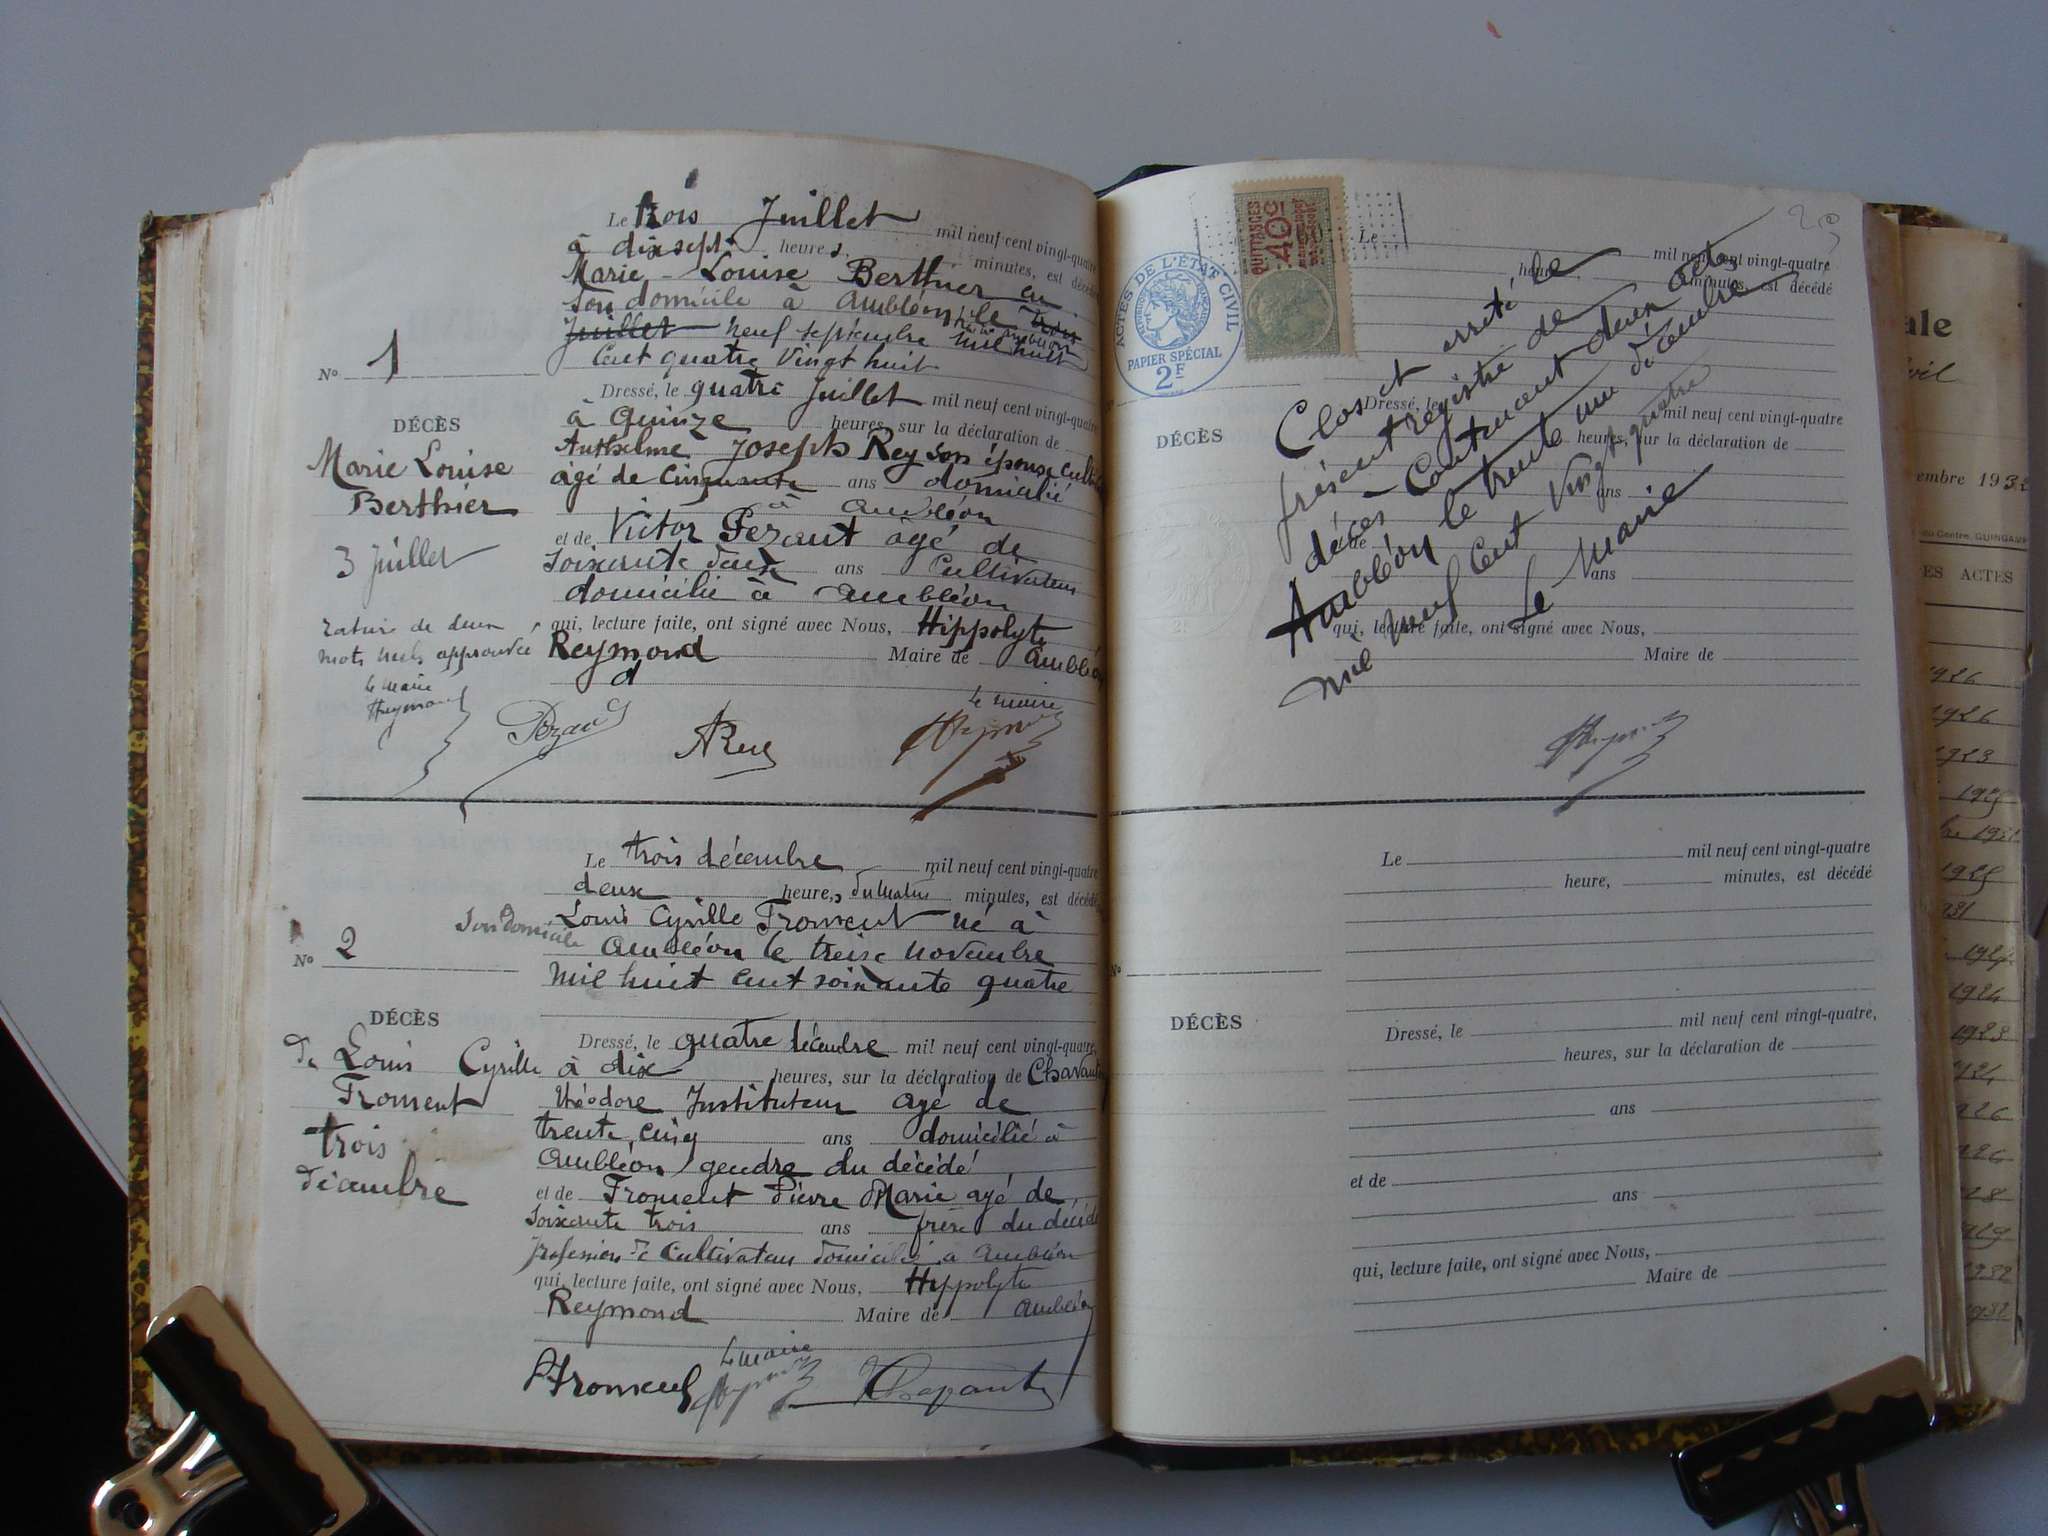 Le trois Juillet mil neuf cent vingt-quatre
à dix sept heures, minutes, est décédé
Marie-Louise Berthier en
son domicile à Ambléon
née à Ambléon
le trois
Juillet neuf septembre mil huit
Cent quatre Vingt huit
No 1
Dressé, le quatre Juillet mil neuf cent vingt-quatre
à Quinze heures, sur la déclaration de
DÉCÈS
Anthelme Joseph Rey son épouse
Marie Louise
âgé de Cinquante ans domicilié
Berthier
à Ambléon
et de Victor Pezant âgé de
3 Juillet
Soixante deux ans Cultivateur
domicilié à Ambléon
rature de deux
mots nuls approuvée
le Maire
HReymond
qui, lecture faite, ont signé avec Nous, Hippolyte
Reymond Maire de Ambléon
le maire
Le trois décembre mil neuf cent vingt-quatre
deux heures, du Matin minutes, est décédé
Louis Cyrille Froment né à
Son domicile
Ambléon le treize novembre
No 2
mil huit cent soixante quatre
DÉCÈS
de Louis Cyrille
Froment
trois
décembre
Dressé, le quatre décembre mil neuf cent vingt-quatre,
à dix heures, sur la déclaration de
Théodore Instituteur agé de
trente cinq ans domicilié à
Ambléon, gendre du décédé
et de Froment Pierre Marie agé de
Soixante trois ans frère du décédé
profession de Cultivateur domicilié à Ambléon
qui, lecture faite, ont signé avec Nous, Hippolyte
Reymond Maire de Ambléon
le maire
PFroment
QUITTANCES
40c
ACTES DE L'ÉTAT CIVIL
RÉPUBLIQUE FRANÇAISE
PAPIER SPÉCIAL
2F
Le mil neuf cent vingt-quatre,
heure, minutes, est décédé
DÉCÈS
Dressé, le mil neuf cent vingt-quatre
heures, sur la déclaration de
ans
et de
ans
qui, lecture faite, ont signé avec Nous,
Maire de
Clos et arrêté le
présent registre de
décès - Contenant deux actes
Ambléon le trente un décembre
mil neuf Cent Vingt quatre
Le Maire
Le mil neuf cent vingt-quatre
heure, minutes, est décédé
No
DÉCÈS
Dressé, le mil neuf cent vingt-quatre,
heures, sur la déclaration de
ans
et de
ans
qui, lecture faite, ont signé avec Nous,
Maire de
ale
embre 1932
du Centre, GUINGAMP
ES ACTES
1926
1926
1923